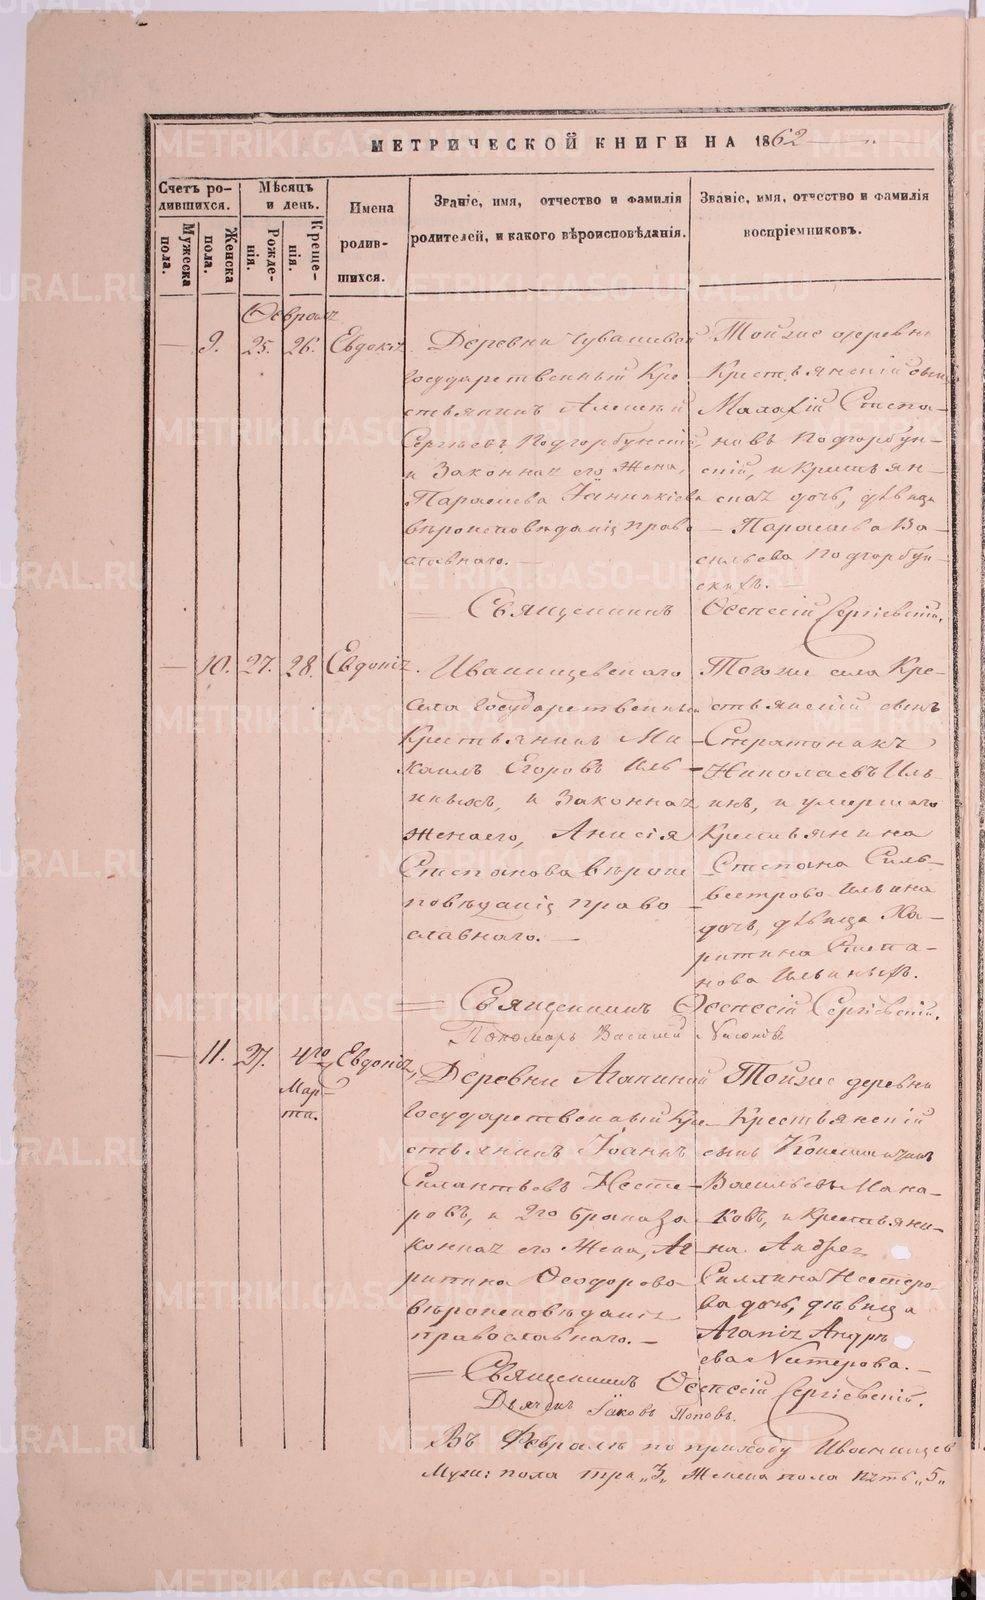 МЕТРИЧЕСКОЙ КНИГИ НА 1862
Счетъ ро-
дившихся.
Мужеска
пола.
Женска
пола.
Мѣсяцъ
и день.
Рожде-
нія.
Креще-
нія.
Имена
родив-
шихся.
Званіе, имя, отчество и фамилія
родителей, и какого вѣроисповѣданія.
Званіе, имя, отчество и фамилія
воспріемниковъ.
Февраля
— 9. 25. 26. Евдокія
Деревни Чувашевой
Государственный Кре
стьянинъ Алексѣй
Сергѣевъ Подгорбунскій,
и законная его жена,
Параскева Іанникіева
вѣроисповѣданія право
славнаго. —
Тойже деревни
Крестьянскій сынъ
Малахій Степа-
новъ Подгорбун-
скій, и крестьян-
ская дочь, дѣвица
Параскева Ва-
сильева Подгорбун-
скихъ. —
Священникъ Евсевій Сергіевскій.
— 10. 27. 28. Евдокія.
Иванищевскаго
села Государственный
Крестьянинъ Ми
хаилъ Егоровъ Иль-
иныхъ, и законная
жена его, Анисія
Степанова вѣроис
повѣданія право-
славнаго. —
Тогоже села Кре-
стьянскій сынъ
Стратоникъ
Николаевъ Иль-
инъ, и умершаго
Крестьянина
Степана Силь-
вестрова Ильина
дочь, дѣвица Ха-
ритина Степа-
нова Ильиныхъ.
Священникъ Евсевій Сергіевскій.
Пономарь Василій
— 11. 27. 4го Мар-
та. Евдокія,
Деревни Агапиной
Государственный Кре-
стьянинъ Іоаннъ
Силантьевъ Несте-
ровъ, и 2го брака за
конная его жена, Аг-
рипина Феодорова
вѣроисповѣданія
православнаго. —
Тойже деревни
Крестьянскій
сынъ
Васильевъ Мака-
ровъ, и Крестьяни-
на Андрея
Силлина Нестеро-
ва дочь, дѣвица
Агапія Андрѣ
ева Нестерова. —
Священникъ Евсевій Сергіевскій.
Дьячекъ Іаковъ Поповъ.
Въ Февралѣ по приходу Иванищев
Муж: пола три „3„ Женска пола пять „5„
METRIKI.GASO-URAL.RU